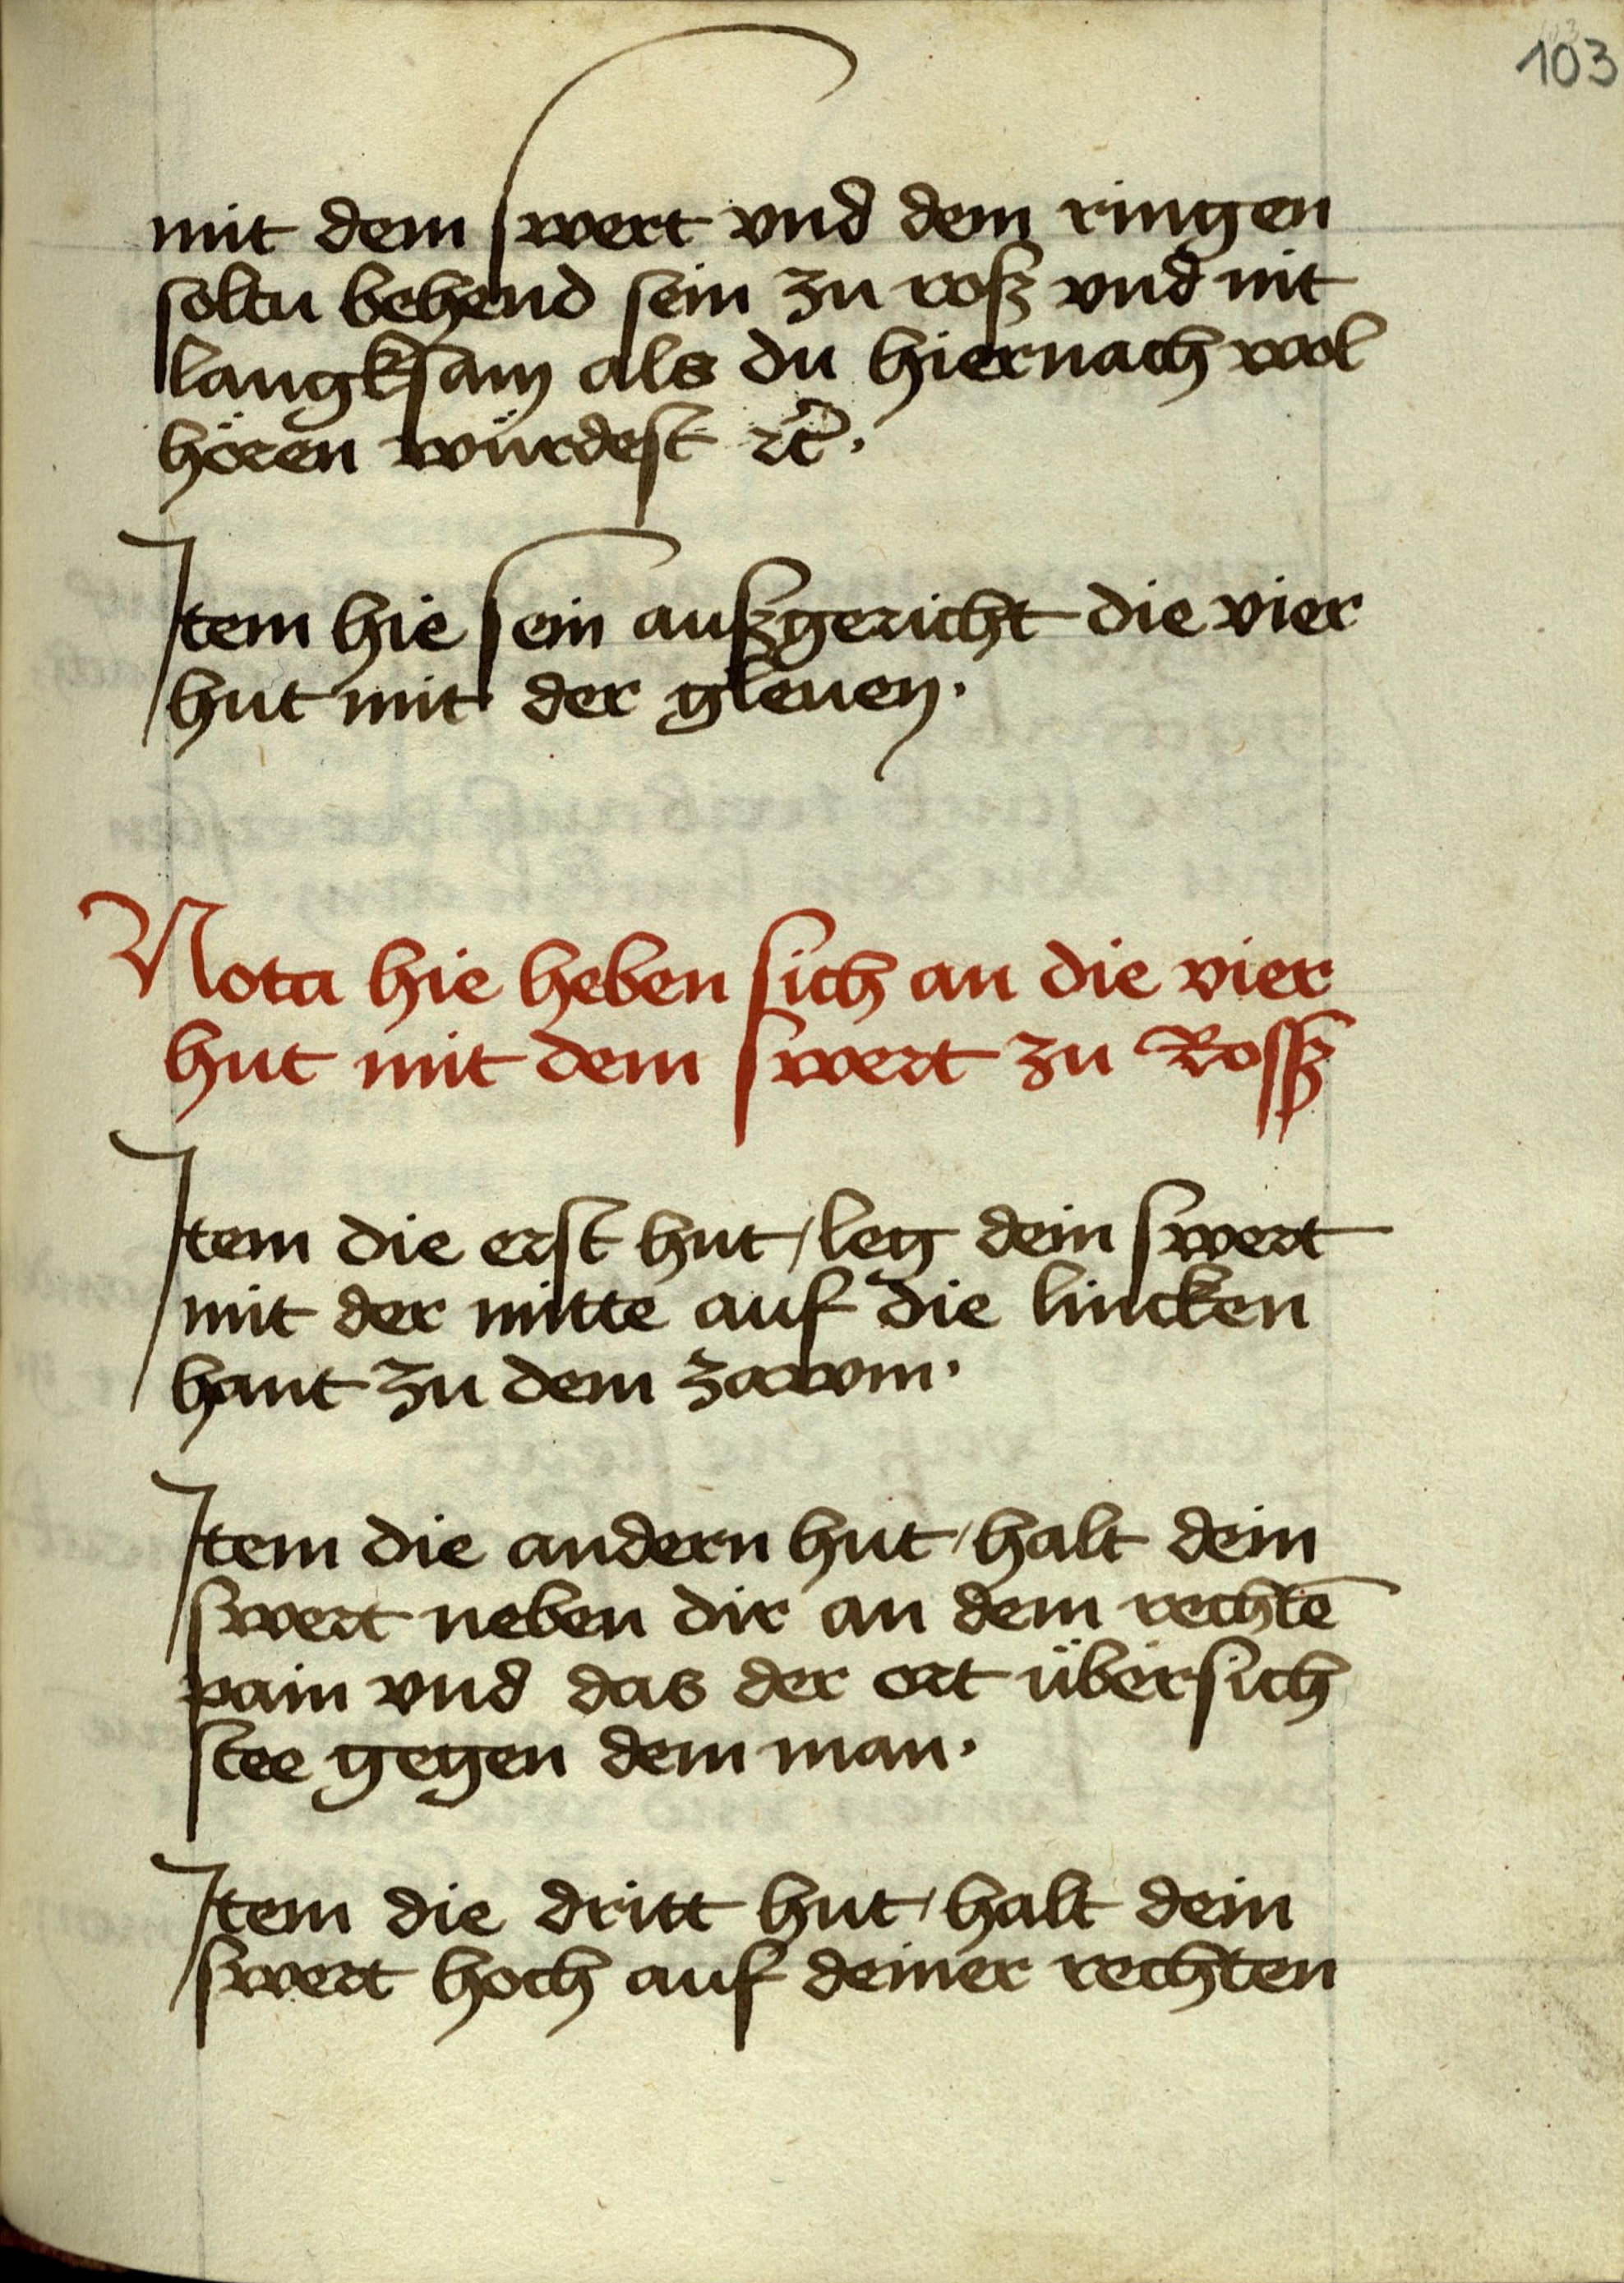 103
mit dem swert vnd dem ringen
soltu behend sein zu roß vnd nit
langksam als du hiernach wol
hören würdest ⁊c̃.
Item hie sein außgericht die vier
hut mit der gleuen.
Nota hie heben sich an die vier
hut mit dem swert zu Rosß
Item die erst hut / leg dein swert
mit der mitte auf die lincken
hant zu dem zawm.
Item die andern hut / halt dein
swert neben dir an dem rechtē
pain vnd das der ort übersich
stee gegen dem man.
Item die dritt hut / halt dein
swert hoch auf deiner rechten